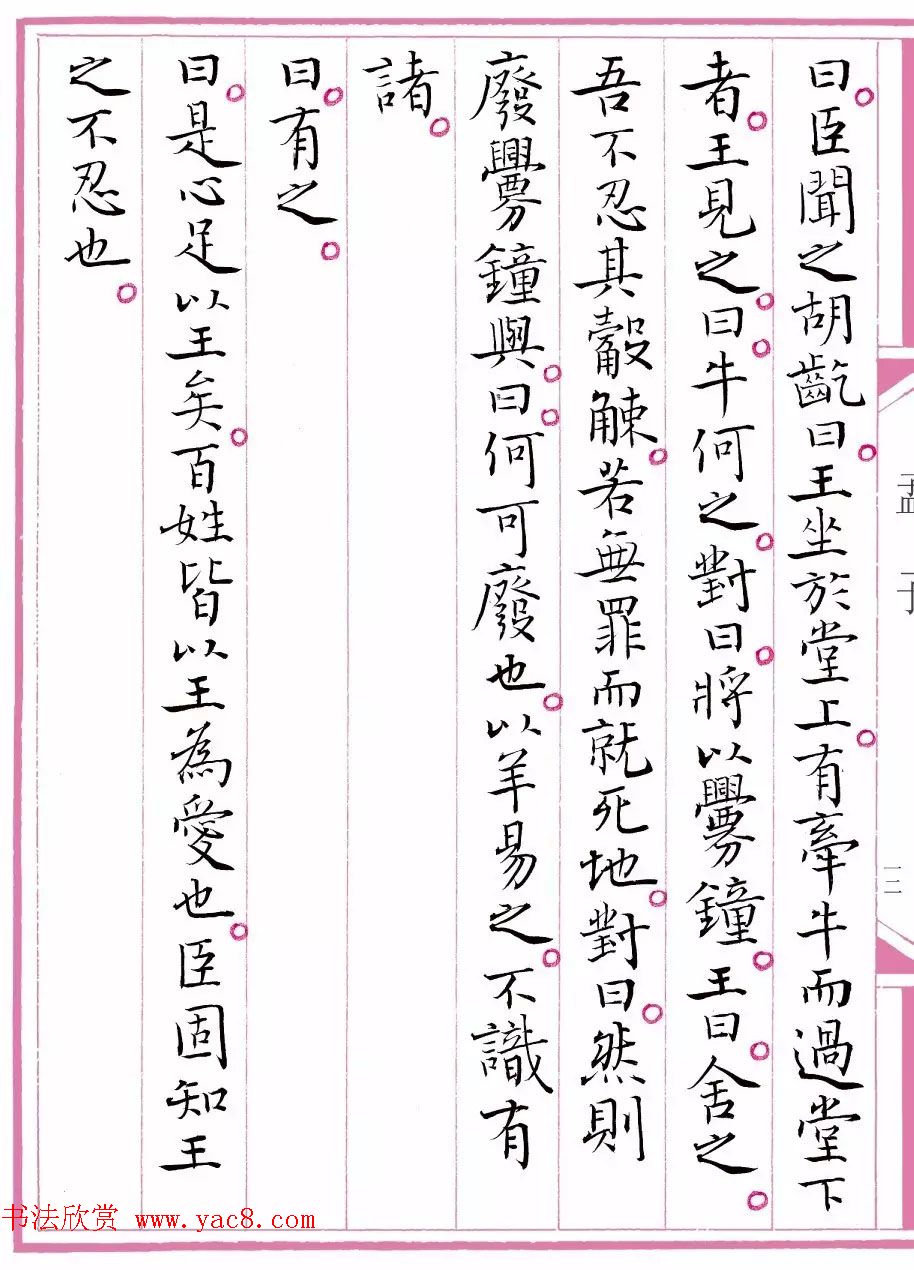 孟子
三
曰。臣聞之胡齕曰。王坐於堂上。有牽牛而過堂下
者。王見之。曰。牛何之。對曰。將以釁鐘。王曰。舍之。
吾不忍其觳觫。若無罪而就死地。對曰。然則
廢釁鐘與。曰。何可廢也。以羊易之。不識有
諸。
曰。有之。
曰。是心足以王矣。百姓皆以王為愛也。臣固知王
之不忍也。
书法欣赏 www.yac8.com